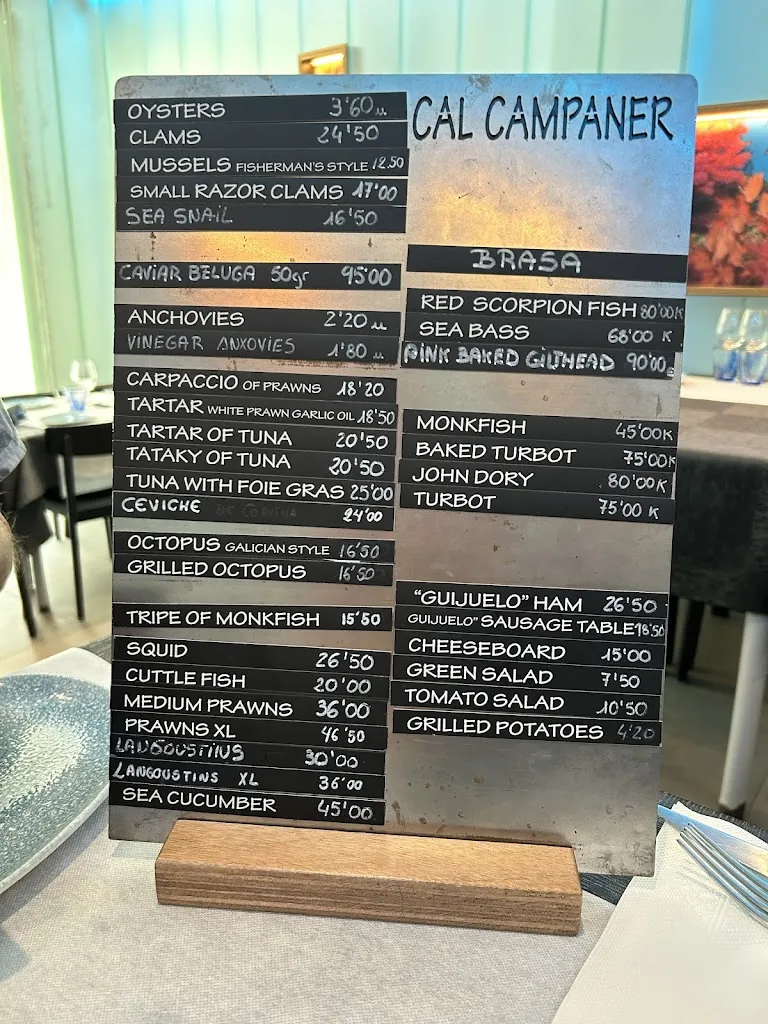 OYSTERS 3'60 u
CLAMS 24'50
MUSSELS FISHERMAN'S STYLE 12.50
SMALL RAZOR CLAMS 17'00
SEA SNAIL 16'50
CAVIAR BELUGA 50gr 95'00
ANCHOVIES 2'20 u
VINEGAR ANXOVIES 1'80 u
CARPACCIO OF PRAWNS 18'20
TARTAR WHITE PRAWN GARLIC OIL 18'50
TARTAR OF TUNA 20'50
TATAKY OF TUNA 20'50
TUNA WITH FOIE GRAS 25'00
CEVICHE DE CORVINA 24'00
OCTOPUS GALICIAN STYLE 16'50
GRILLED OCTOPUS 16'50
TRIPE OF MONKFISH 15'50
SQUID 26'50
CUTTLE FISH 20'00
MEDIUM PRAWNS 36'00
PRAWNS XL 46'50
LANGOUSTINS 30'00
LANGOUSTINS XL 36'00
SEA CUCUMBER 45'00
CAL CAMPANER
BRASA
RED SCORPION FISH 80'00K
SEA BASS 68'00 K
PINK BAKED GILTHEAD 90'00
MONKFISH 45'00K
BAKED TURBOT 75'00K
JOHN DORY 80'00K
TURBOT 75'00 K
"GUIJUELO" HAM 26'50
GUIJUELO" SAUSAGE TABLE 18'50
CHEESEBOARD 15'00
GREEN SALAD 7'50
TOMATO SALAD 10'50
GRILLED POTATOES 4'20